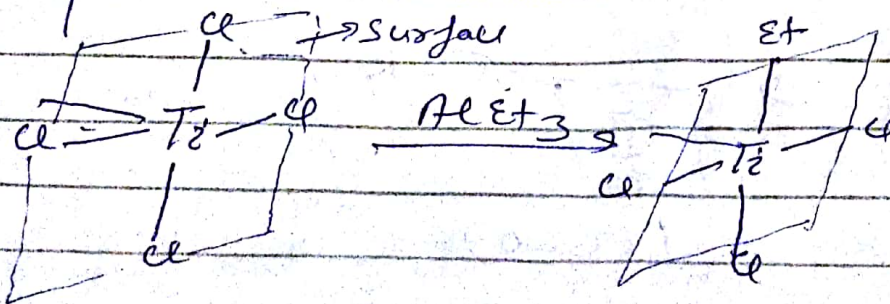 Cl → Surface Et
Cl Ti Cl AlEt3 Cl Ti Cl
Cl Cl